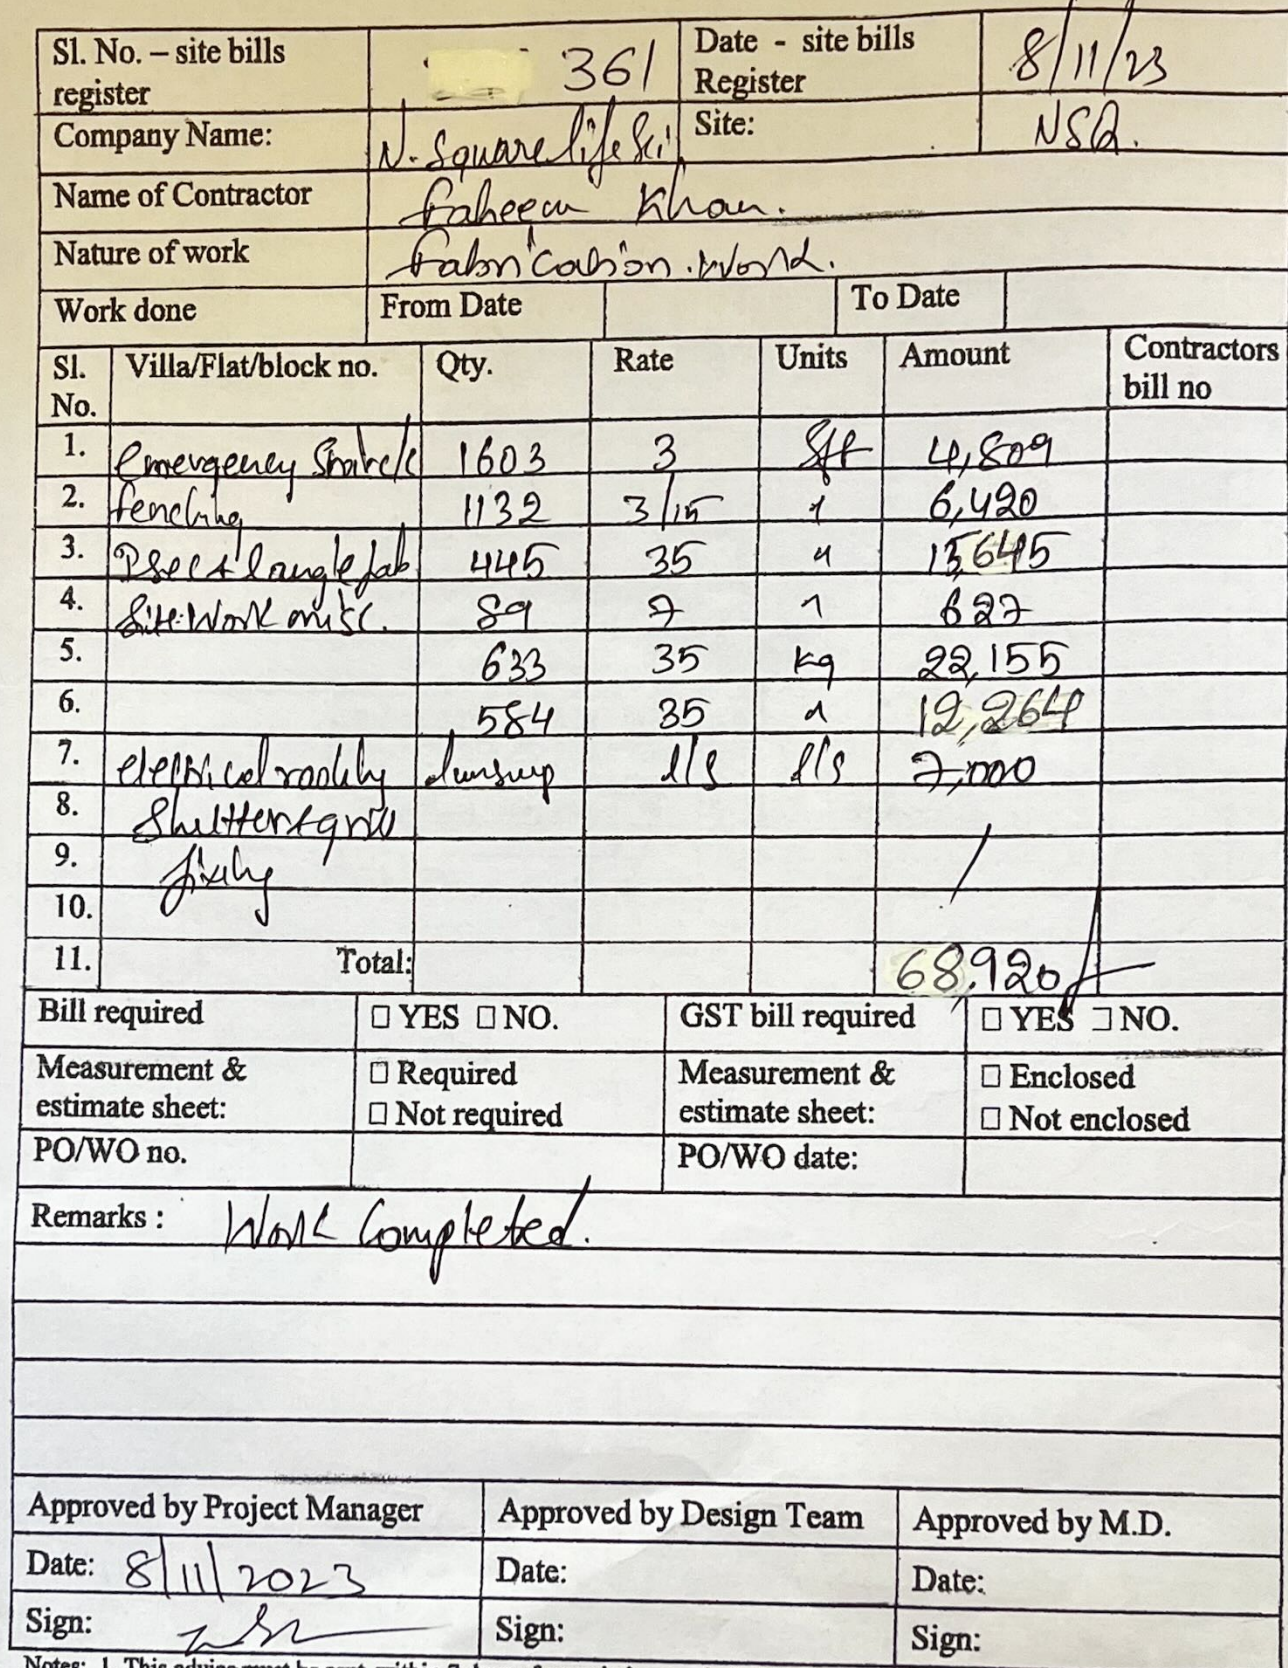 Sl. No. – site bills register 361 Date - site bills Register 8/11/23
Company Name: N. Square life Sci Site: NSQ.
Name of Contractor Faheem Khan.
Nature of work Fabrication work.
Work done From Date To Date
Sl. No. Villa/Flat/block no. Qty. Rate Units Amount Contractors bill no
1. emergency 1603 3 sft 4,809
2. fencing 1132 3/15 " 6,420
3. 445 35 " 15,645
4. Site work misc. 89 7 " 627
5. 633 35 kg 22,155
6. 584 35 " 12,264
7. electrical l/s l/s 7,000
8. Shutter+grill
9. fixing
10.
11. Total: 68,920/-
Bill required ☐ YES ☐ NO. GST bill required ☐ YES ☐ NO.
Measurement & estimate sheet: ☐ Required ☐ Not required Measurement & estimate sheet: ☐ Enclosed ☐ Not enclosed
PO/WO no. PO/WO date:
Remarks : Work Completed.
Approved by Project Manager Approved by Design Team Approved by M.D.
Date: 8/11/2023 Date: Date:
Sign: Sign: Sign: